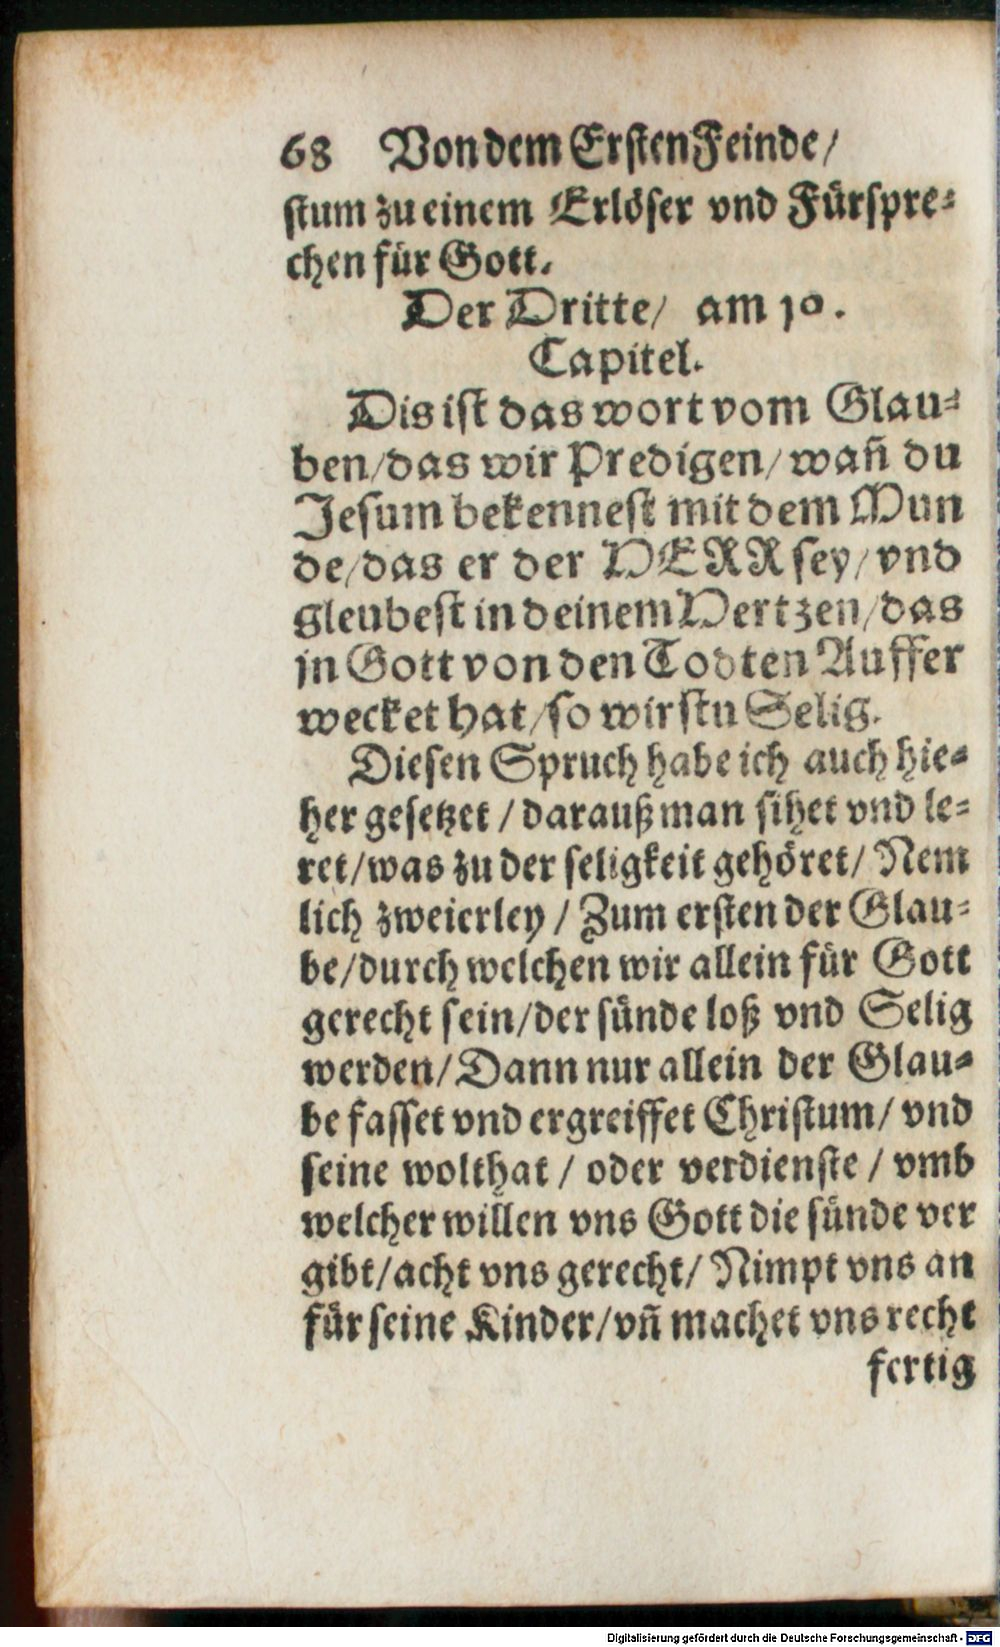 68 Von dem Ersten Feinde/
stum zu einem Erlöser vnd Fürspre-
chen für Gott.
Der Dritte/ am 10.
Capitel.
Dis ist das wort vom Glau-
ben/das wir Predigen/wañ du
Jesum bekennest mit dem Mun
de/das er der HERR sey/vnd
gleubest in deinem Hertzen/das
jn Gott von den Todten Auffer
wecket hat/so wirstu Selig.
Diesen Spruch habe ich auch hie-
her gesetzet / darauß man sihet vnd le-
ret/was zu der seligkeit gehöret/ Nem
lich zweierley / Zum ersten der Glau-
be/durch welchen wir allein für Gott
gerecht sein/der sünde loß vnd Selig
werden/Dann nur allein der Glau-
be fasset vnd ergreiffet Christum/ vnd
seine wolthat / oder verdienste / vmb
welcher willen vns Gott die sünde ver
gibt/acht vns gerecht/ Nimpt vns an
für seine Kinder/vñ machet vns recht
fertig
Digitalisierung gefördert durch die Deutsche Forschungsgemeinschaft - DFG